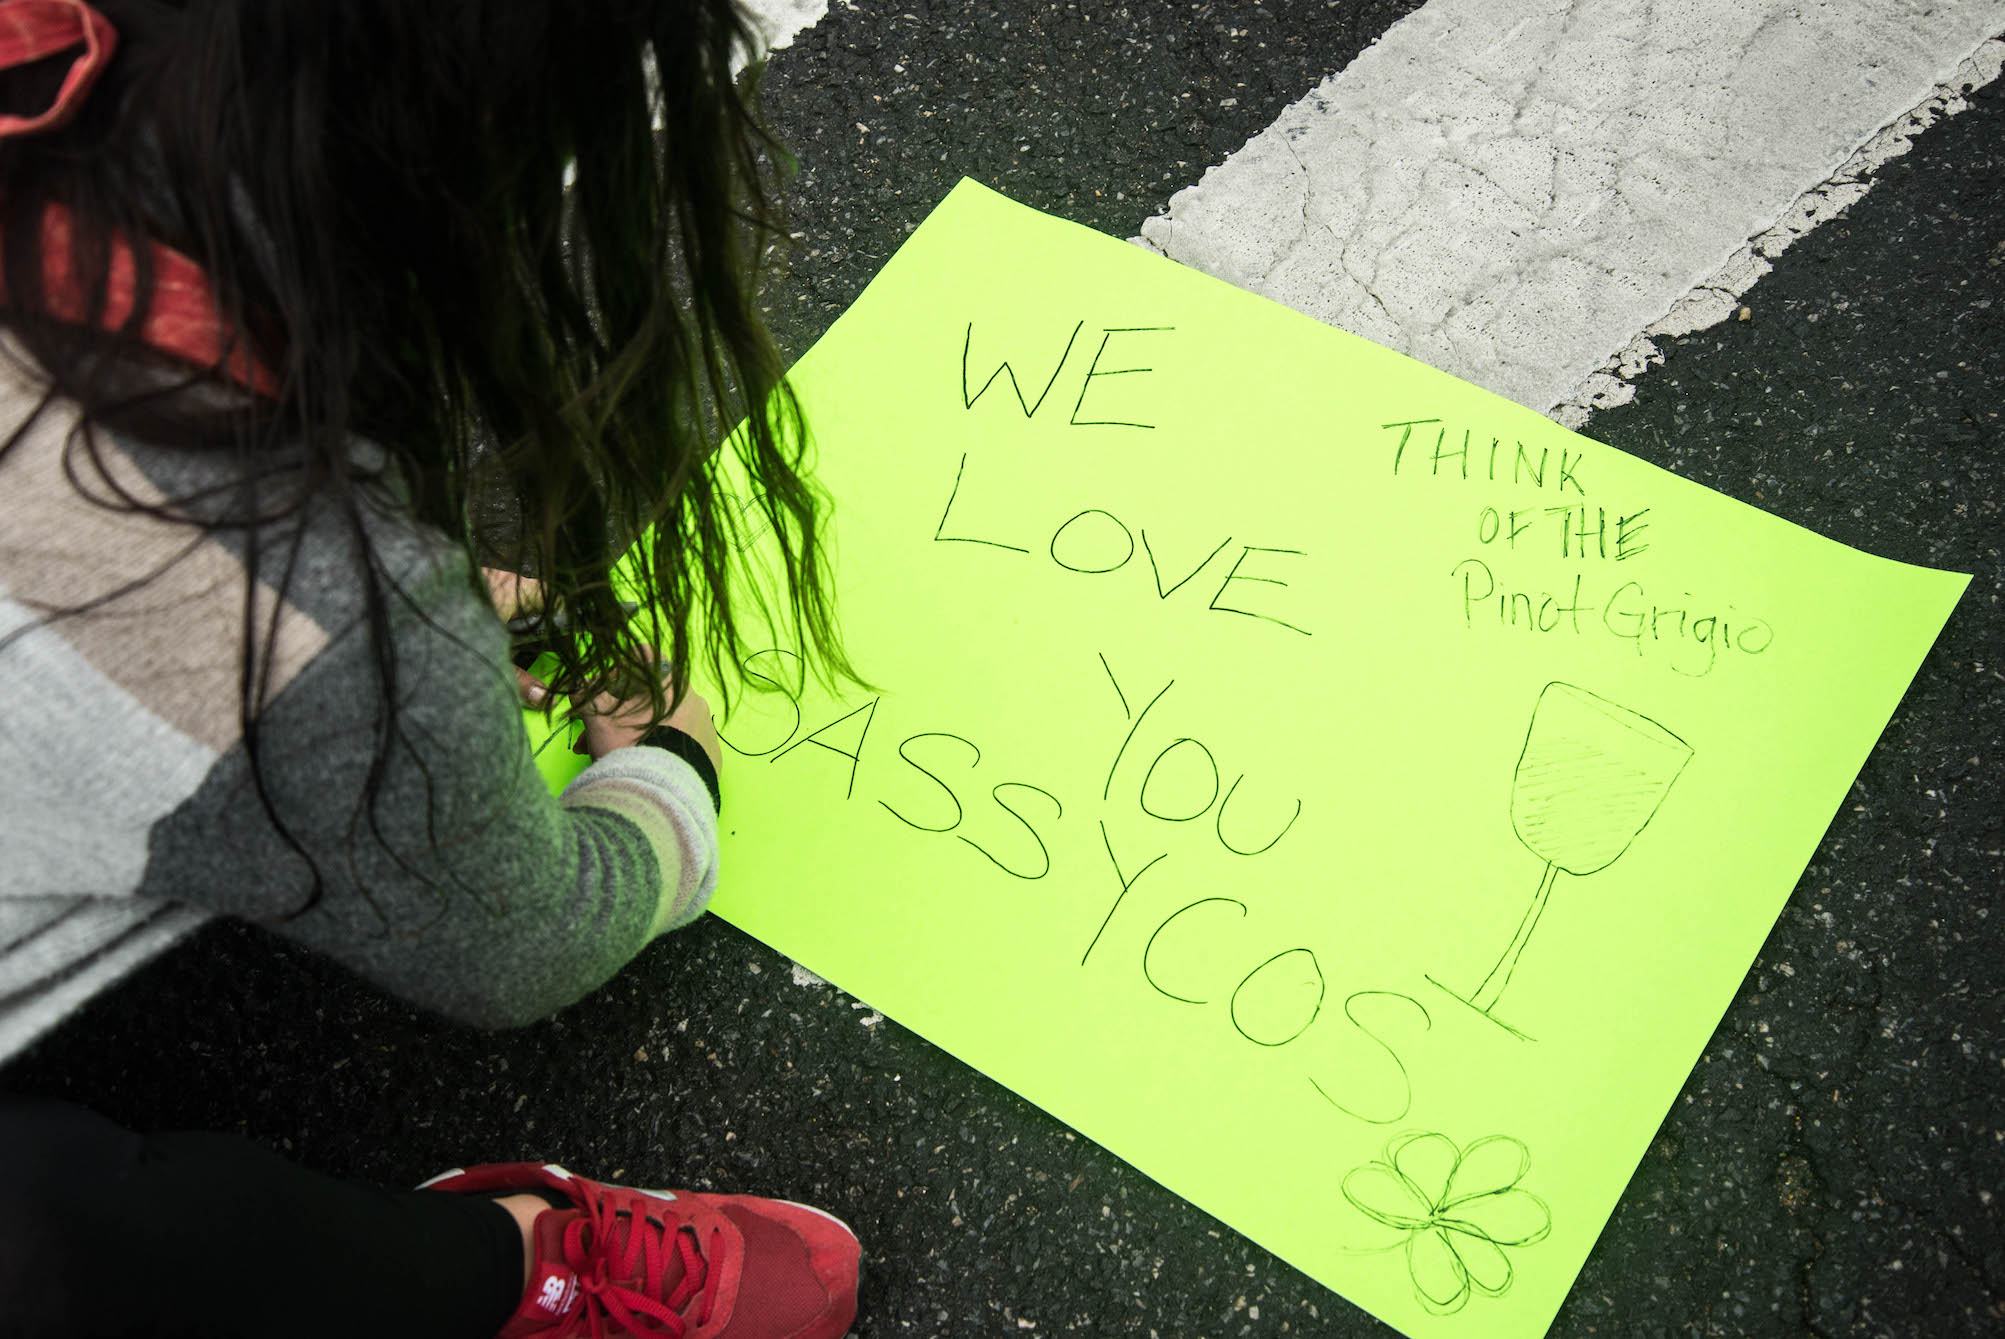 WE
LOVE
YOU
SASSYCOS
THINK
OF THE
Pinot Grigio
NB